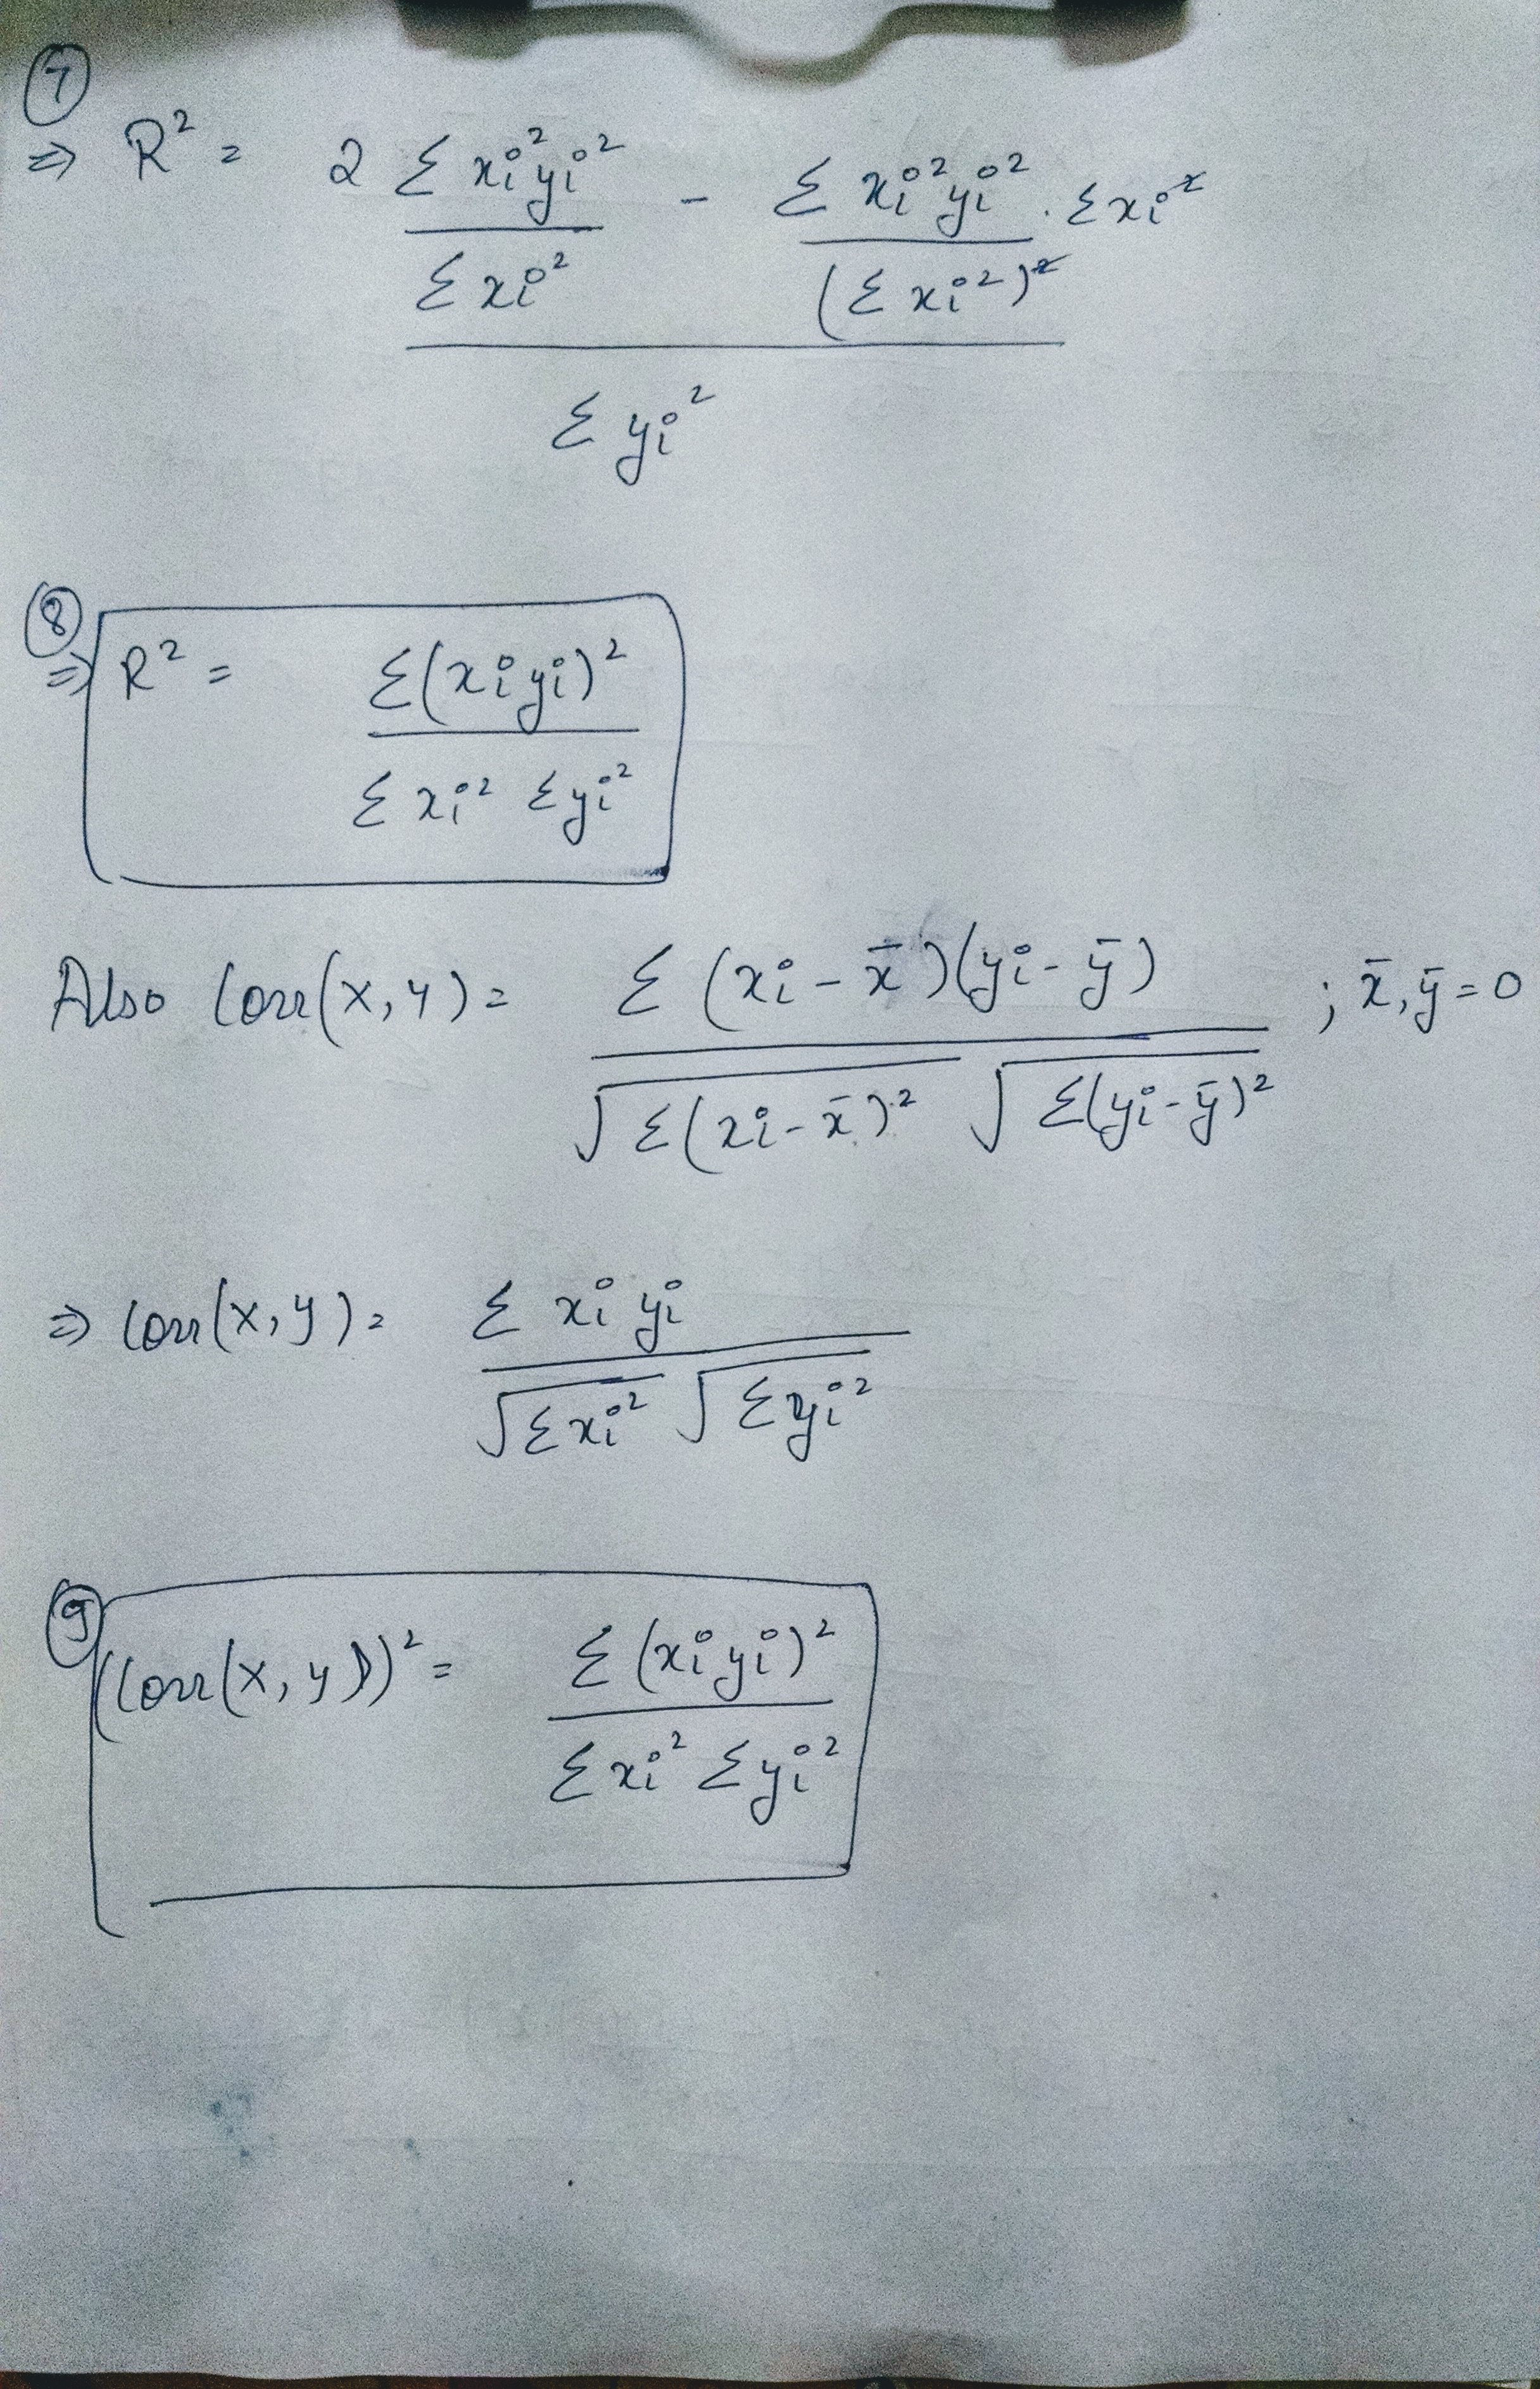 ⑦
⇒ R² = 2 Σ xi²yi² / Σ xi² - Σ xi²yi² / (Σ xi²)² . Σ xi²
Σ yi²
⑧
⇒ R² = Σ(xi yi)² / Σ xi² Σ yi²
Also Corr(x, y) = Σ (xi - x̄)(yi - ȳ) / √Σ(xi - x̄)² √Σ(yi - ȳ)² ; x̄, ȳ = 0
⇒ Corr(x, y) = Σ xi yi / √Σxi² √Σyi²
⑨
(Corr(x, y))² = Σ (xi yi)² / Σ xi² Σ yi²